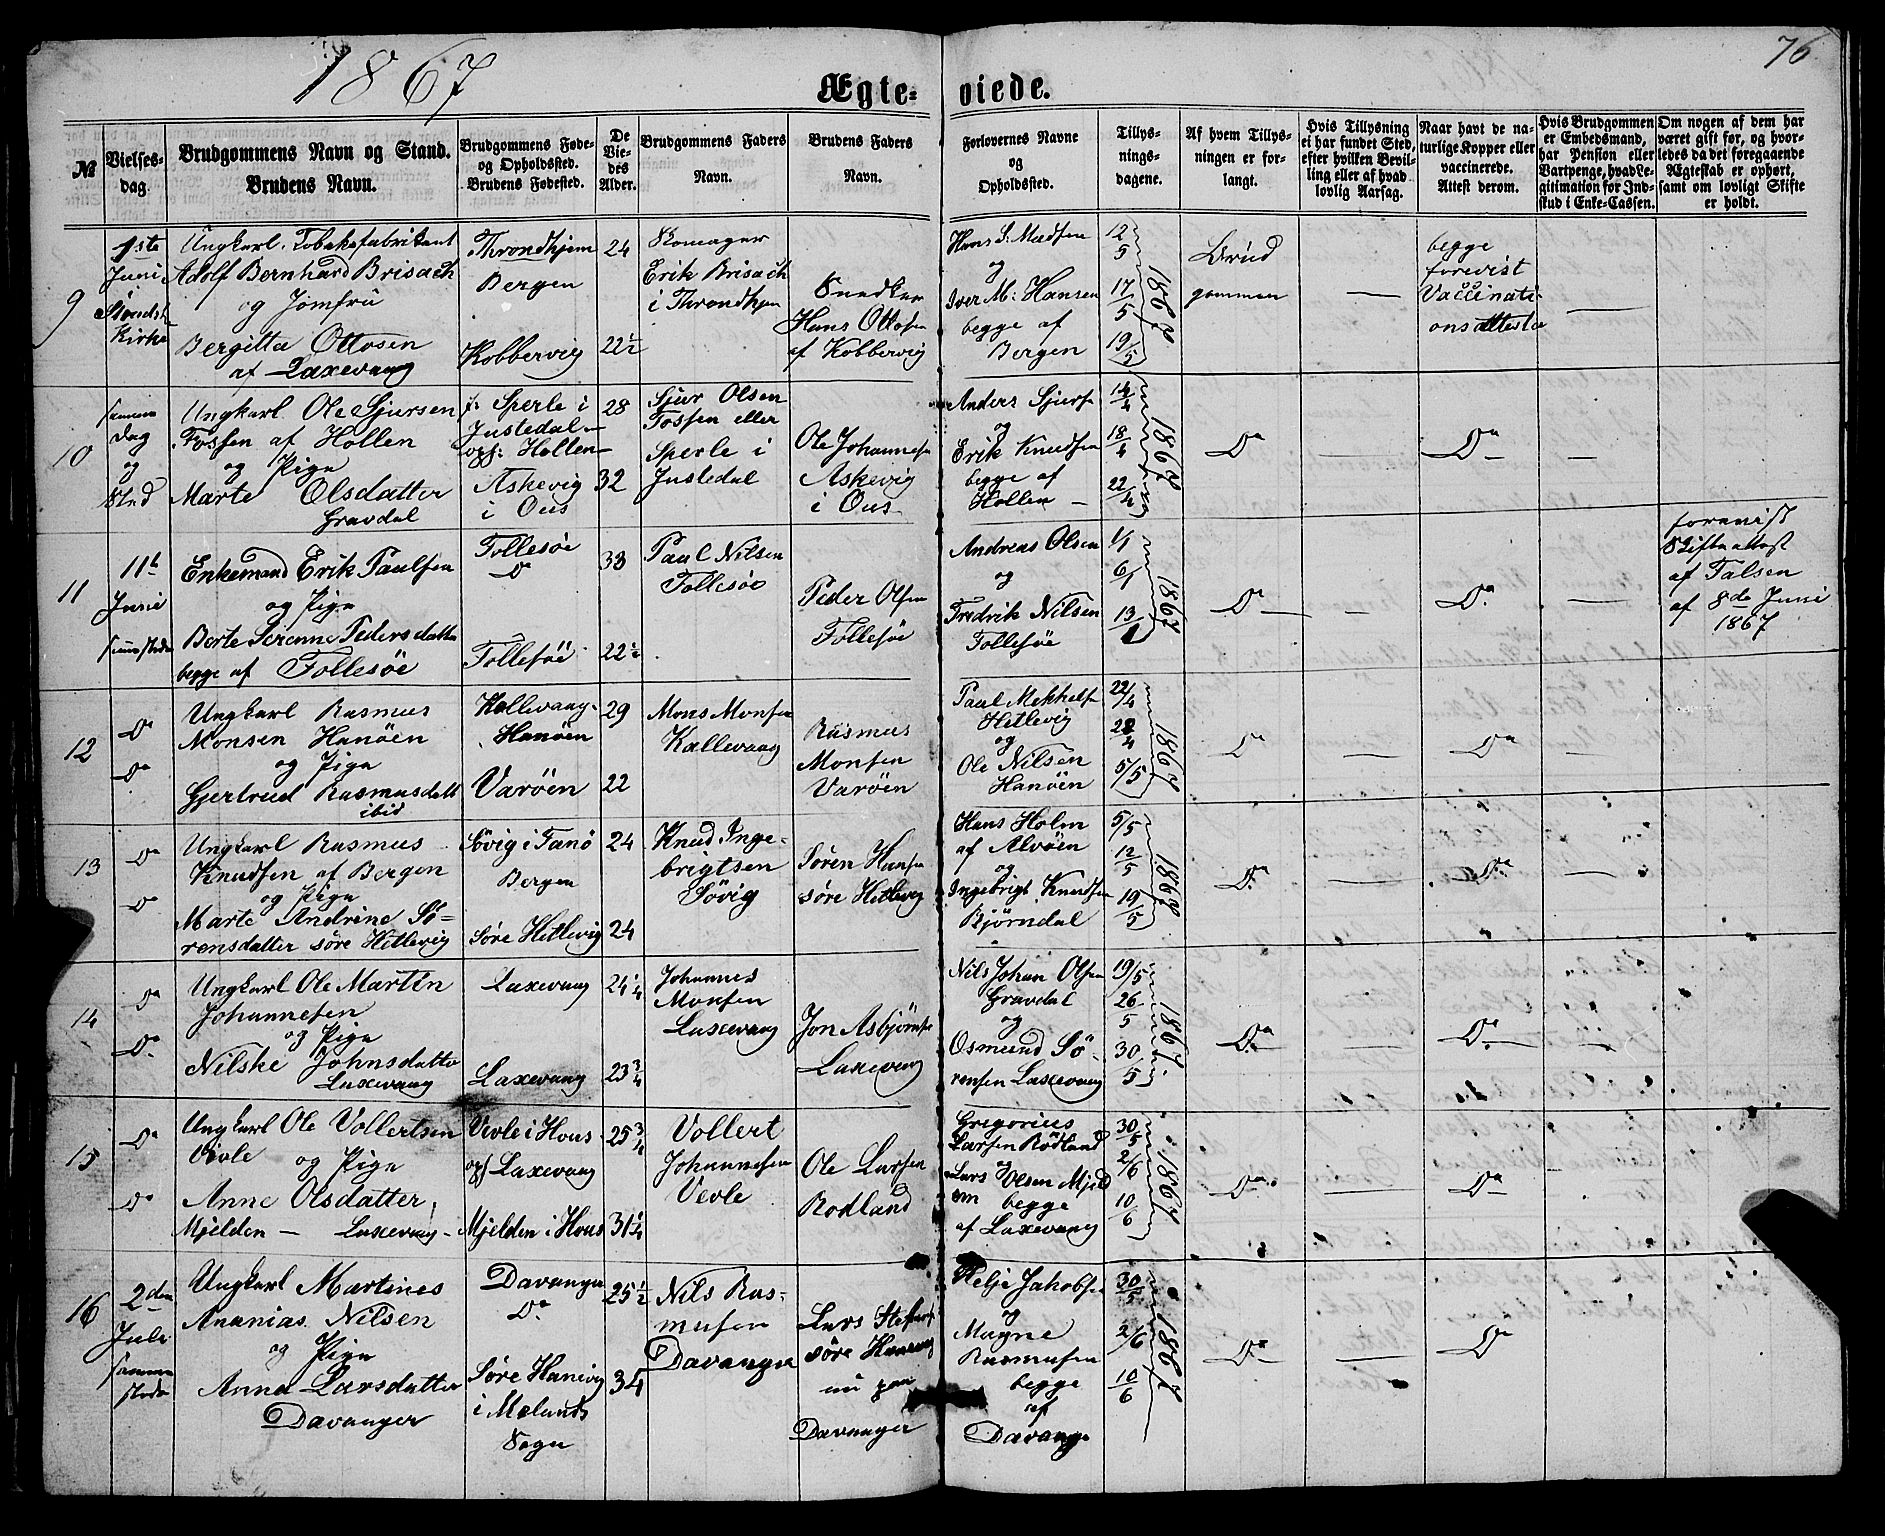 1867
76
Ægte-
viede.
№
Vielses-
dag.
Brudgommens Navn og Stand.
Brudens Navn.
Brudgommens Føde-
og Opholdssted.
Brudens Fødested.
De
Vie-
des
Alder.
Brudgommens Faders
Navn.
Brudens Faders
Navn.
Forlovernes Navne
og
Opholdssted.
Tillys-
nings-
dagene.
Af hvem Tillys-
ningen er for-
langt.
Hvis Tillysning
ei har fundet Sted,
efter hvilken Bevil-
ling eller af hvad
lovlig Aarsag.
Naar havt de na-
turlige Kopper eller
vaccinerede.
Attest derom.
Hvis Brudgommen
er Embedsmand,
har Pension eller
Vartpenge, hvad Le-
gitimation for Ind-
skud i Enke-Cassen.
Om nogen af dem har
været gift før, og hvor-
ledes da det foregaaende
Ægteskab er ophørt,
samt om lovligt Skifte
er holdt.
9
1ste
Juni
Kirke
Ungkarl. Tobaksfabrikant
Adolf Bernhard Brisach
og Jomfru
Bergitta Ottosen
af Laxevaag
Throndhjem
Bergen
Kobbervig
24
22½
Erik Brisach
i Throndhjem
Snedker
Hans Ottosen
af Kobbervig
Hans S. Madsen
og
Iver M: Hansen
begge af
Bergen
12/5
17/5
19/5
1867
Brud
gommen
—
begge
forevist
Vaccinati-
onsattester
—
10
samme
Dag
og
Sted
Ungkarl Ole Sjursen
Fossen af Hollen
og Pige
Marte Olsdatter
Gravdal
f. Sperle i
Justedal
opf: Hollen
Askevig
i Ous
28
32
Sjur Olsen
Fossen eller
Sperle i
Justedal
Ole Johannesen
Askevig
i Ous
Anders Sjurs
og
Erik Knudsen
begge af
Hollen —
14/4
18/4
22/4
1867
Do
—
Do
—
11
11te
Junie
Enkemand Erik Paulsen
og Pige
Berte Serenne Pedersdatter
begge af Follesøe
Follesøe
Do
Follesøe
33
22½
Paul Nilsen
Follesøe
Peder Olsen
Follesøe
Andreas Olsen
og
Fredrik Nilsen
Follesøe
1/1
6/1
13/1
1867
Do
—
Do
—
forevist
Skifteattest
af Falsen
af 8de Juni
1867
12
Do
Do
Ungkarl Rasmus
Monsen Hanøen
og Pige
Gjertrud Rasmusdatt
ibid
Kallevaag
Hanøen
Varøen
29
22
Mons Monsen
Kallevaag
Rasmus
Monsen
Varøen
Paul Mekkels
Hetlevig
og
Ole Nilsen
Hanøen
22/4
28/4
5/5
1867
Do
—
Do
—
13
Do
Do
Ungkarl Rasmus
Knudsen af Bergen
og Pige
Marte Andrine Sø-
rensdatter søre Hetlevig
Søvig i Fanø
Bergen
Søre Hetlevig
24
24
Knud Inge-
brigtsen
Søvig
Søren Hansen
søre Hetlevig
Hans Holm
af Alvøen
og
Ingebrigt Knudsen
Bjørndal
5/5
12/5
19/5
1867
Do
—
Do
—
14
Do
Do
Ungkarl Ole Martin
Johannesen
og Pige
Nilske Johnsdatter
Laxevaag
Laxevaag
Laxevaag
24¼
23¾
Johannes
Monsen
Laxevaag
Jon Asbjørns
Laxevaag
Nils Johan Olsen
Gravdal
og
Osmund Sø-
rensen Laxevaag
19/5
26/5
30/5
1867
Do
—
Do
—
15
Do
Do
Ungkarl Ole Vollertsen
Vevle
og Pige
Anne Olsdatter
Mjelden — Laxevaag
Vevle i Hous
opf Laxevaag
Mjelden i Hous
25¾
31¼
Vollert
Johannesen
Vevle
Ole Larsen
Rodland
Gregorius
Larsen Rødland
og
Lars Olsen Mjeld
begge
af Laxevaag
30/5
2/6
10/6
1867
Do
—
Do
—
16
2den
Juli
samme
steds
Ungkarl Martines
Ananias Nilsen
og Pige
Anna Larsdatter
Davanger
Davanger
Do
Søre Hanevig
i Melands
Sogn
25½
34
Nils Ras-
musen
Davanger
Lars
søre
nu paa
Davanger
Helje Jakobsen
og
Magne
Rasmusen
begge
af
Davanger
30/5
2/6
10/6
1867
Do
—
Do